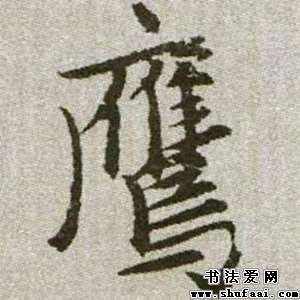 鹰
书法爱网
www.shufaai.com